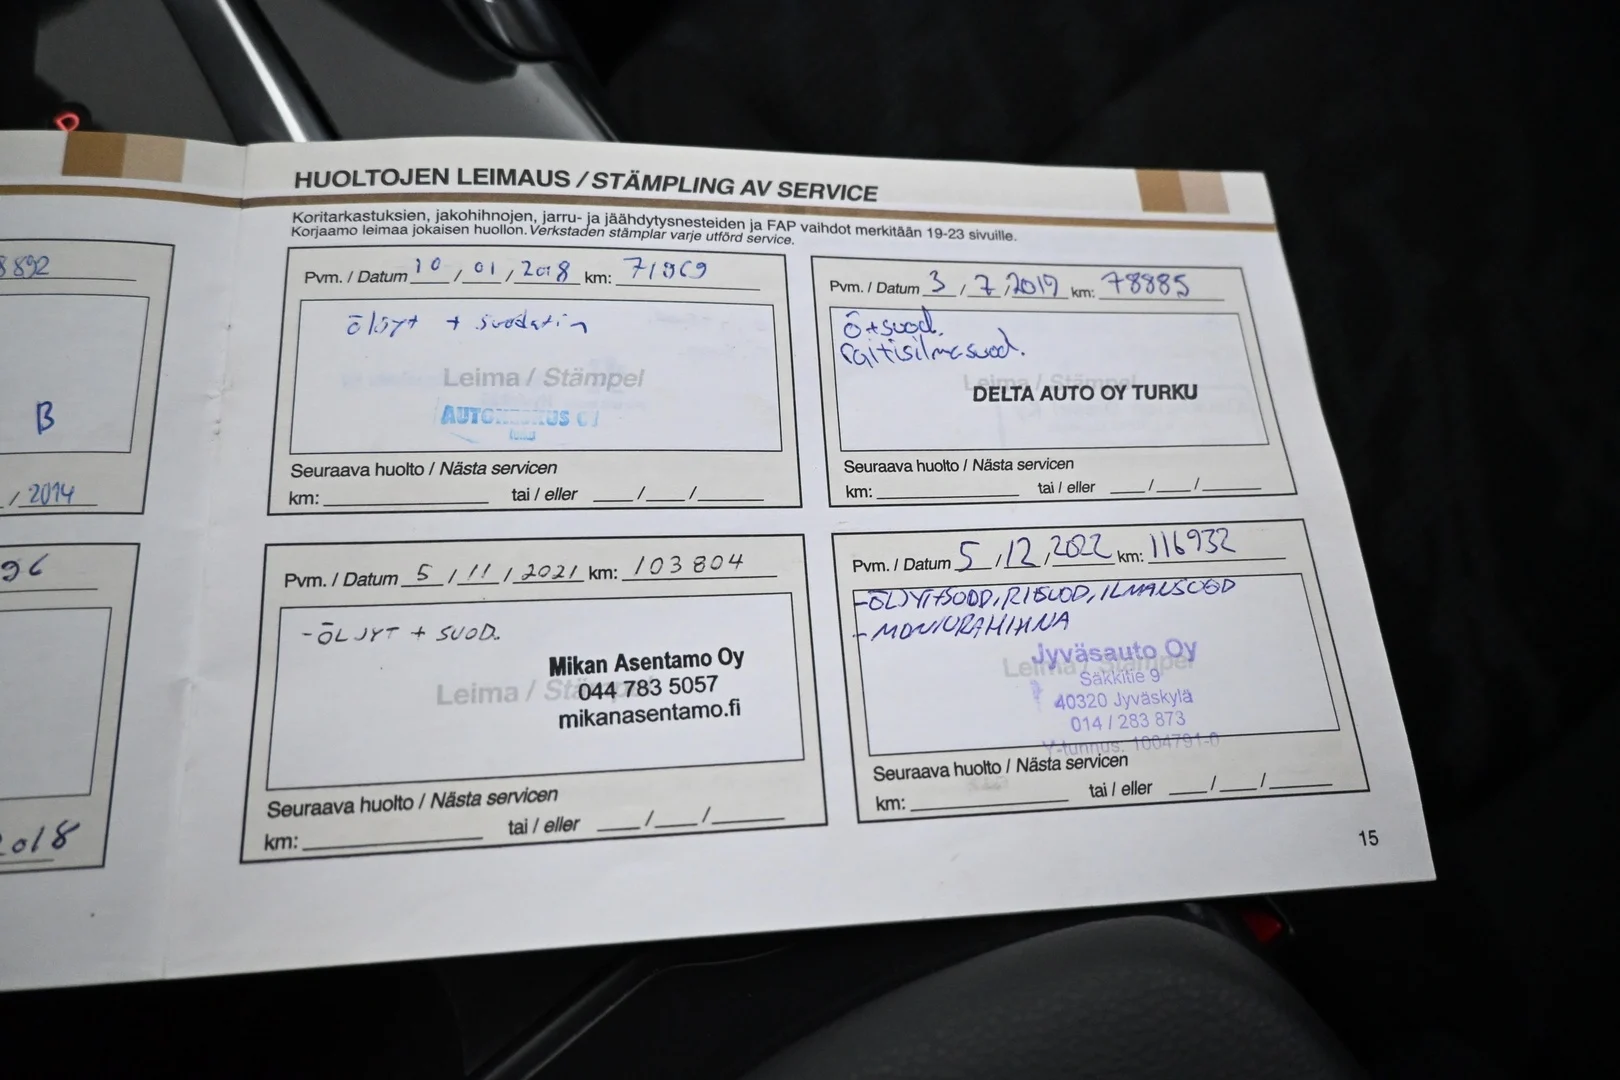 8892
B
/ 2014
96
2018
HUOLTOJEN LEIMAUS / STÄMPLING AV SERVICE
Koritarkastuksien, jakohihnojen, jarru- ja jäähdytysnesteiden ja FAP vaihdot merkitään 19-23 sivuille.
Korjaamo leimaa jokaisen huollon. Verkstaden stämplar varje utförd service.
Pvm. / Datum 10 / 01 / 2018 km: 71969
öljyt + suodatin
Leima / Stämpel
Seuraava huolto / Nästa servicen
km: tai / eller / /
Pvm. / Datum 3 / 7 / 2019 km: 78885
Ö+suod.
raitisilmasuod.
Leima / Stämpel
DELTA AUTO OY TURKU
Seuraava huolto / Nästa servicen
km: tai / eller / /
Pvm. / Datum 5 / 11 / 2021 km: 103 804
- ÖLJYT + SUOD.
Leima / Stämpel
Mikan Asentamo Oy
044 783 5057
mikanasentamo.fi
Seuraava huolto / Nästa servicen
km: tai / eller / /
Pvm. / Datum 5 / 12 / 2022 km: 116932
- ÖLJYT+SUOD, RISUOD, ILMANSUOD
- MONIURAHIHNA
Leima / Stämpel
Jyväsauto Oy
Säkkitie 9
40320 Jyväskylä
014 / 283 873
Y-tunnus: 1004791-0
Seuraava huolto / Nästa servicen
km: tai / eller / /
15